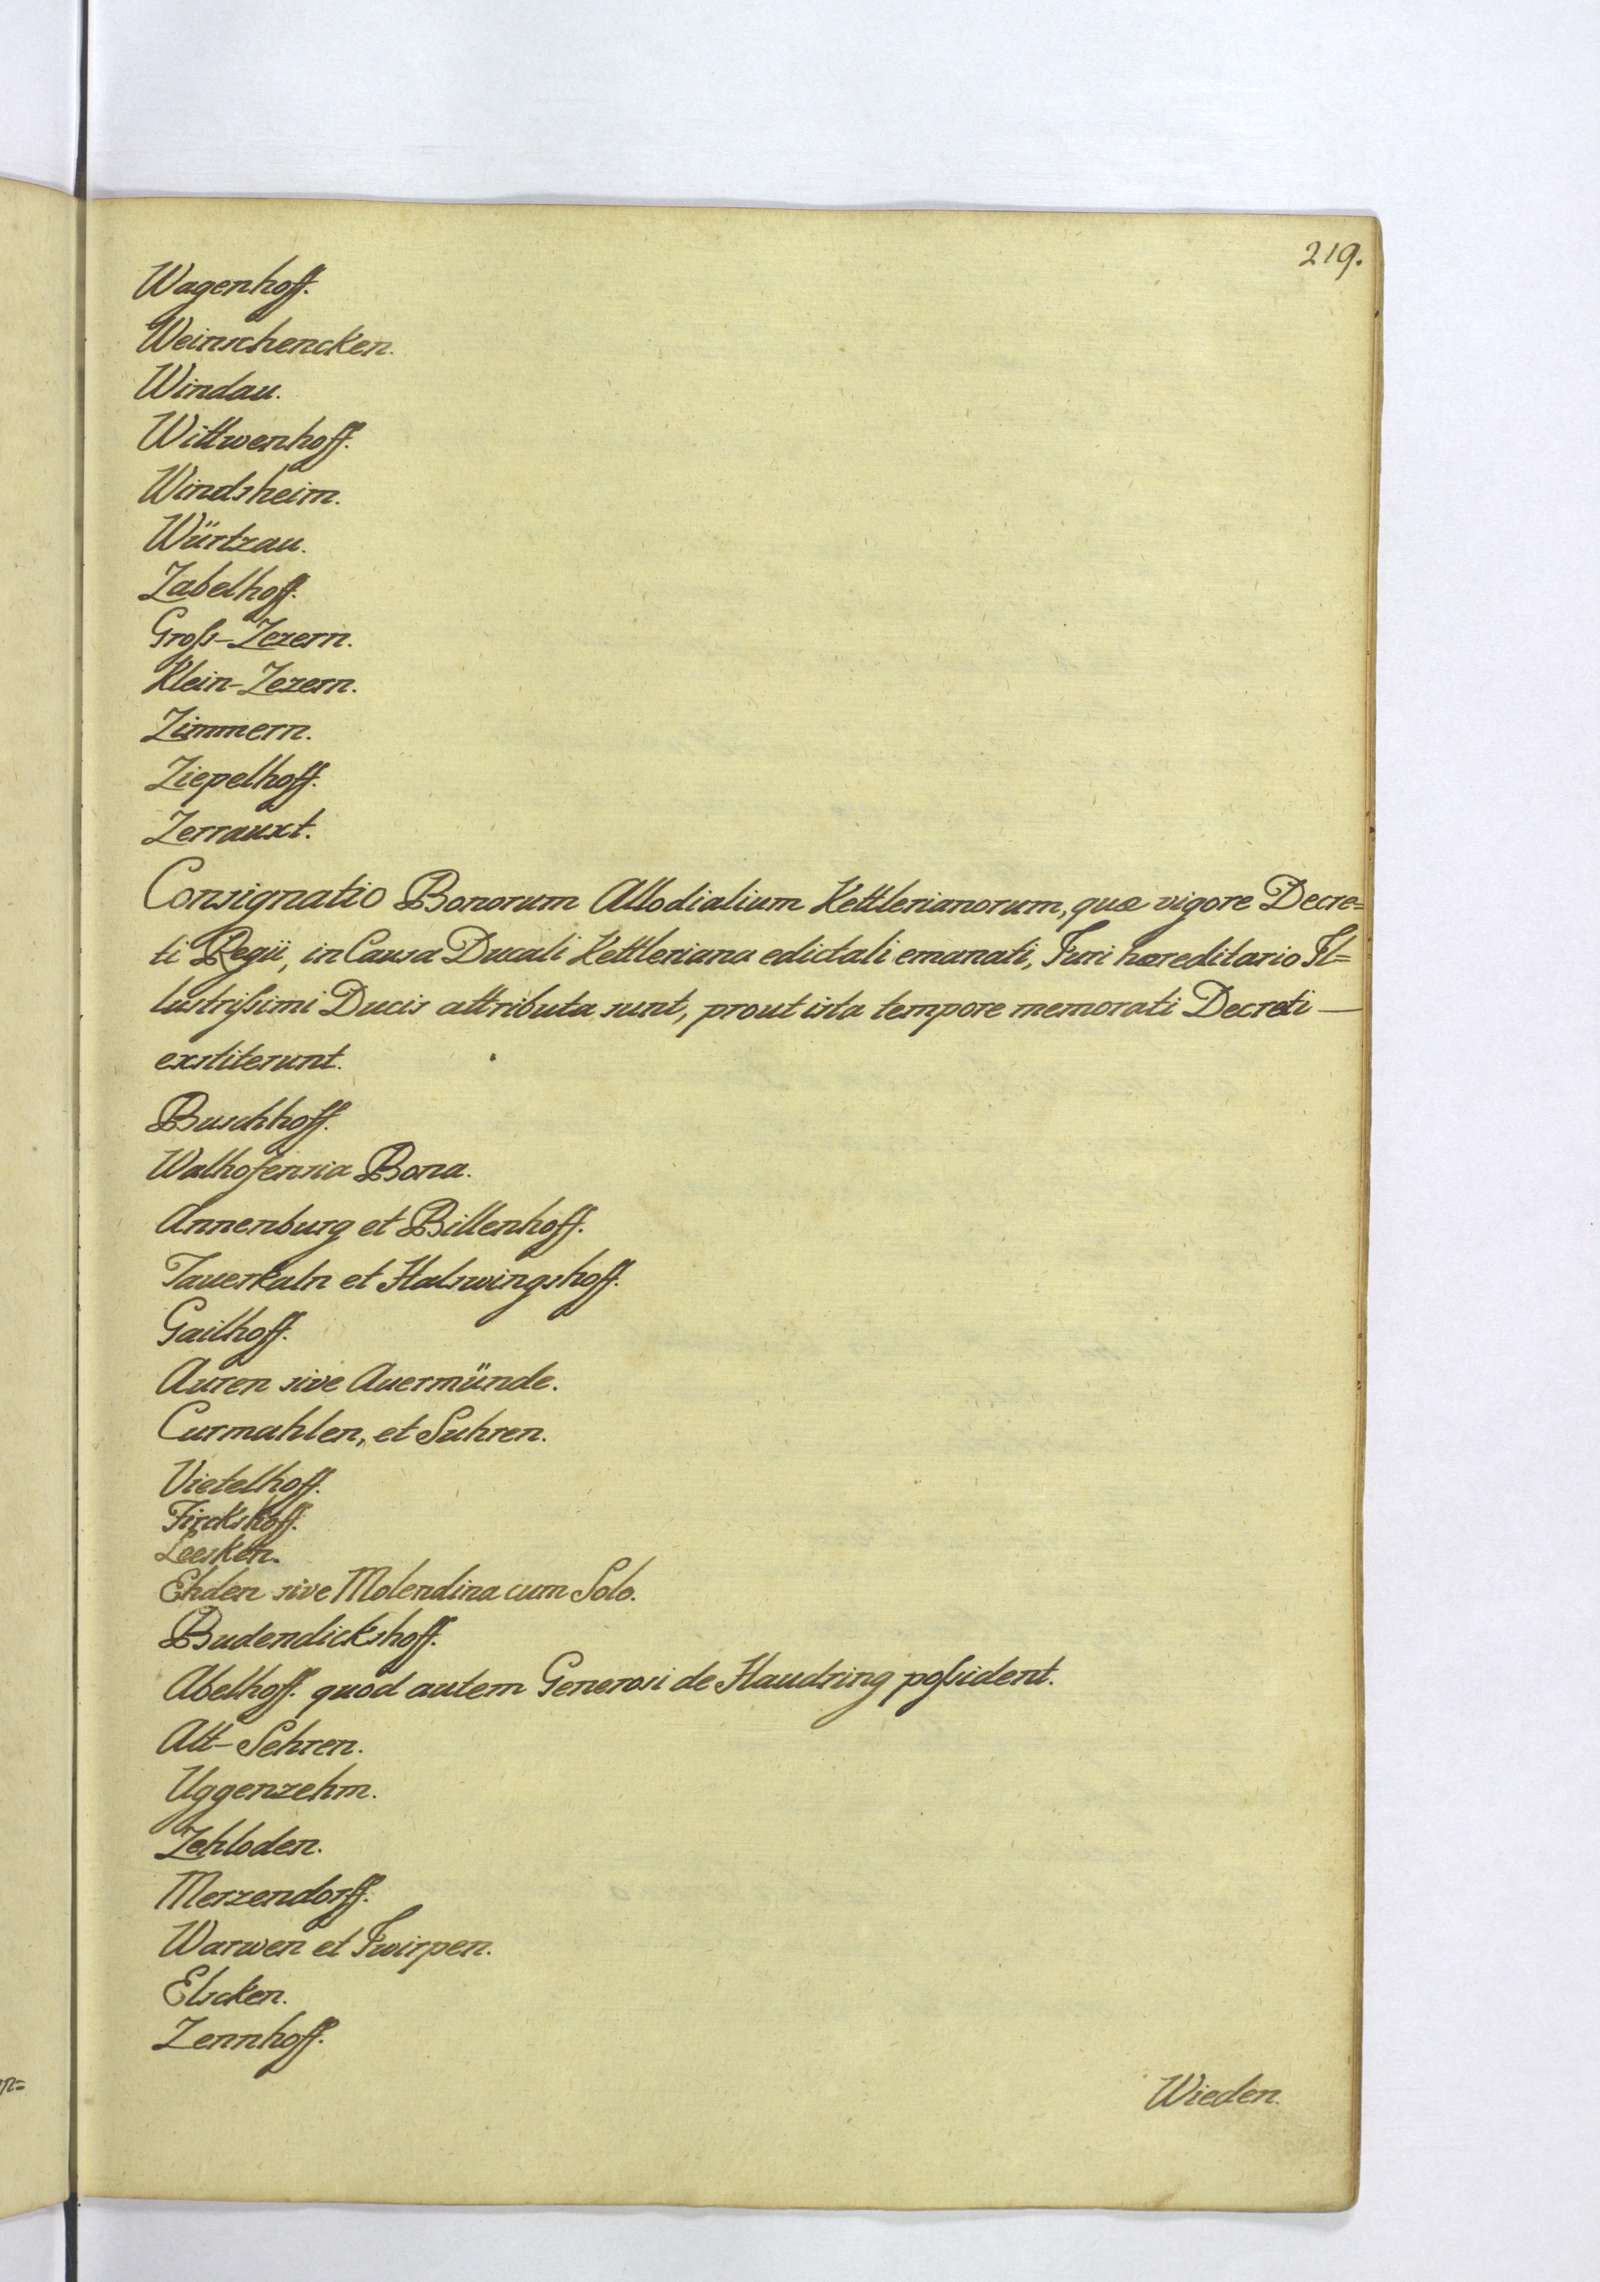 219.
Wagenhoff.
Weinschencken.
Windau.
Wittwenhoff.
Windsheim.
Würtzau.
Zabelhoff.
Groſs-Zezern.
Klein-Zezern.
Zimmern.
Ziepelhoff.
Zerrauxt.
Consignatio Bonorum Allodialium Kettlerianorum, quæ vigore Decre=
ti Regii, in Causa Ducali Kettleriana edictali emanati, Juri hæreditario Il=
lustriſsimi Ducis attributa sunt, prout ista tempore memorati Decreti —
exstiterunt.
Buschhoff.
Walhofensia Bona.
Annenburg et Billenhoff.
Tauerkaln et Halswingshoff.
Gailhoff.
Auren sive Auermünde.
Curmahlen, et Suhren.
Vietelhoff.
Fircks hoff.
Leesken.
Ehden sive Molendina cum Solo.
Budendickshoff.
Abelhoff. quod autem Generosi de Haudring poſsident.
Alt-Sehren.
Uggenzehm.
Zehloden.
Merzendorff.
Warwen et Jwirpen.
Elscken.
Zennhoff.
Wieden.
n=